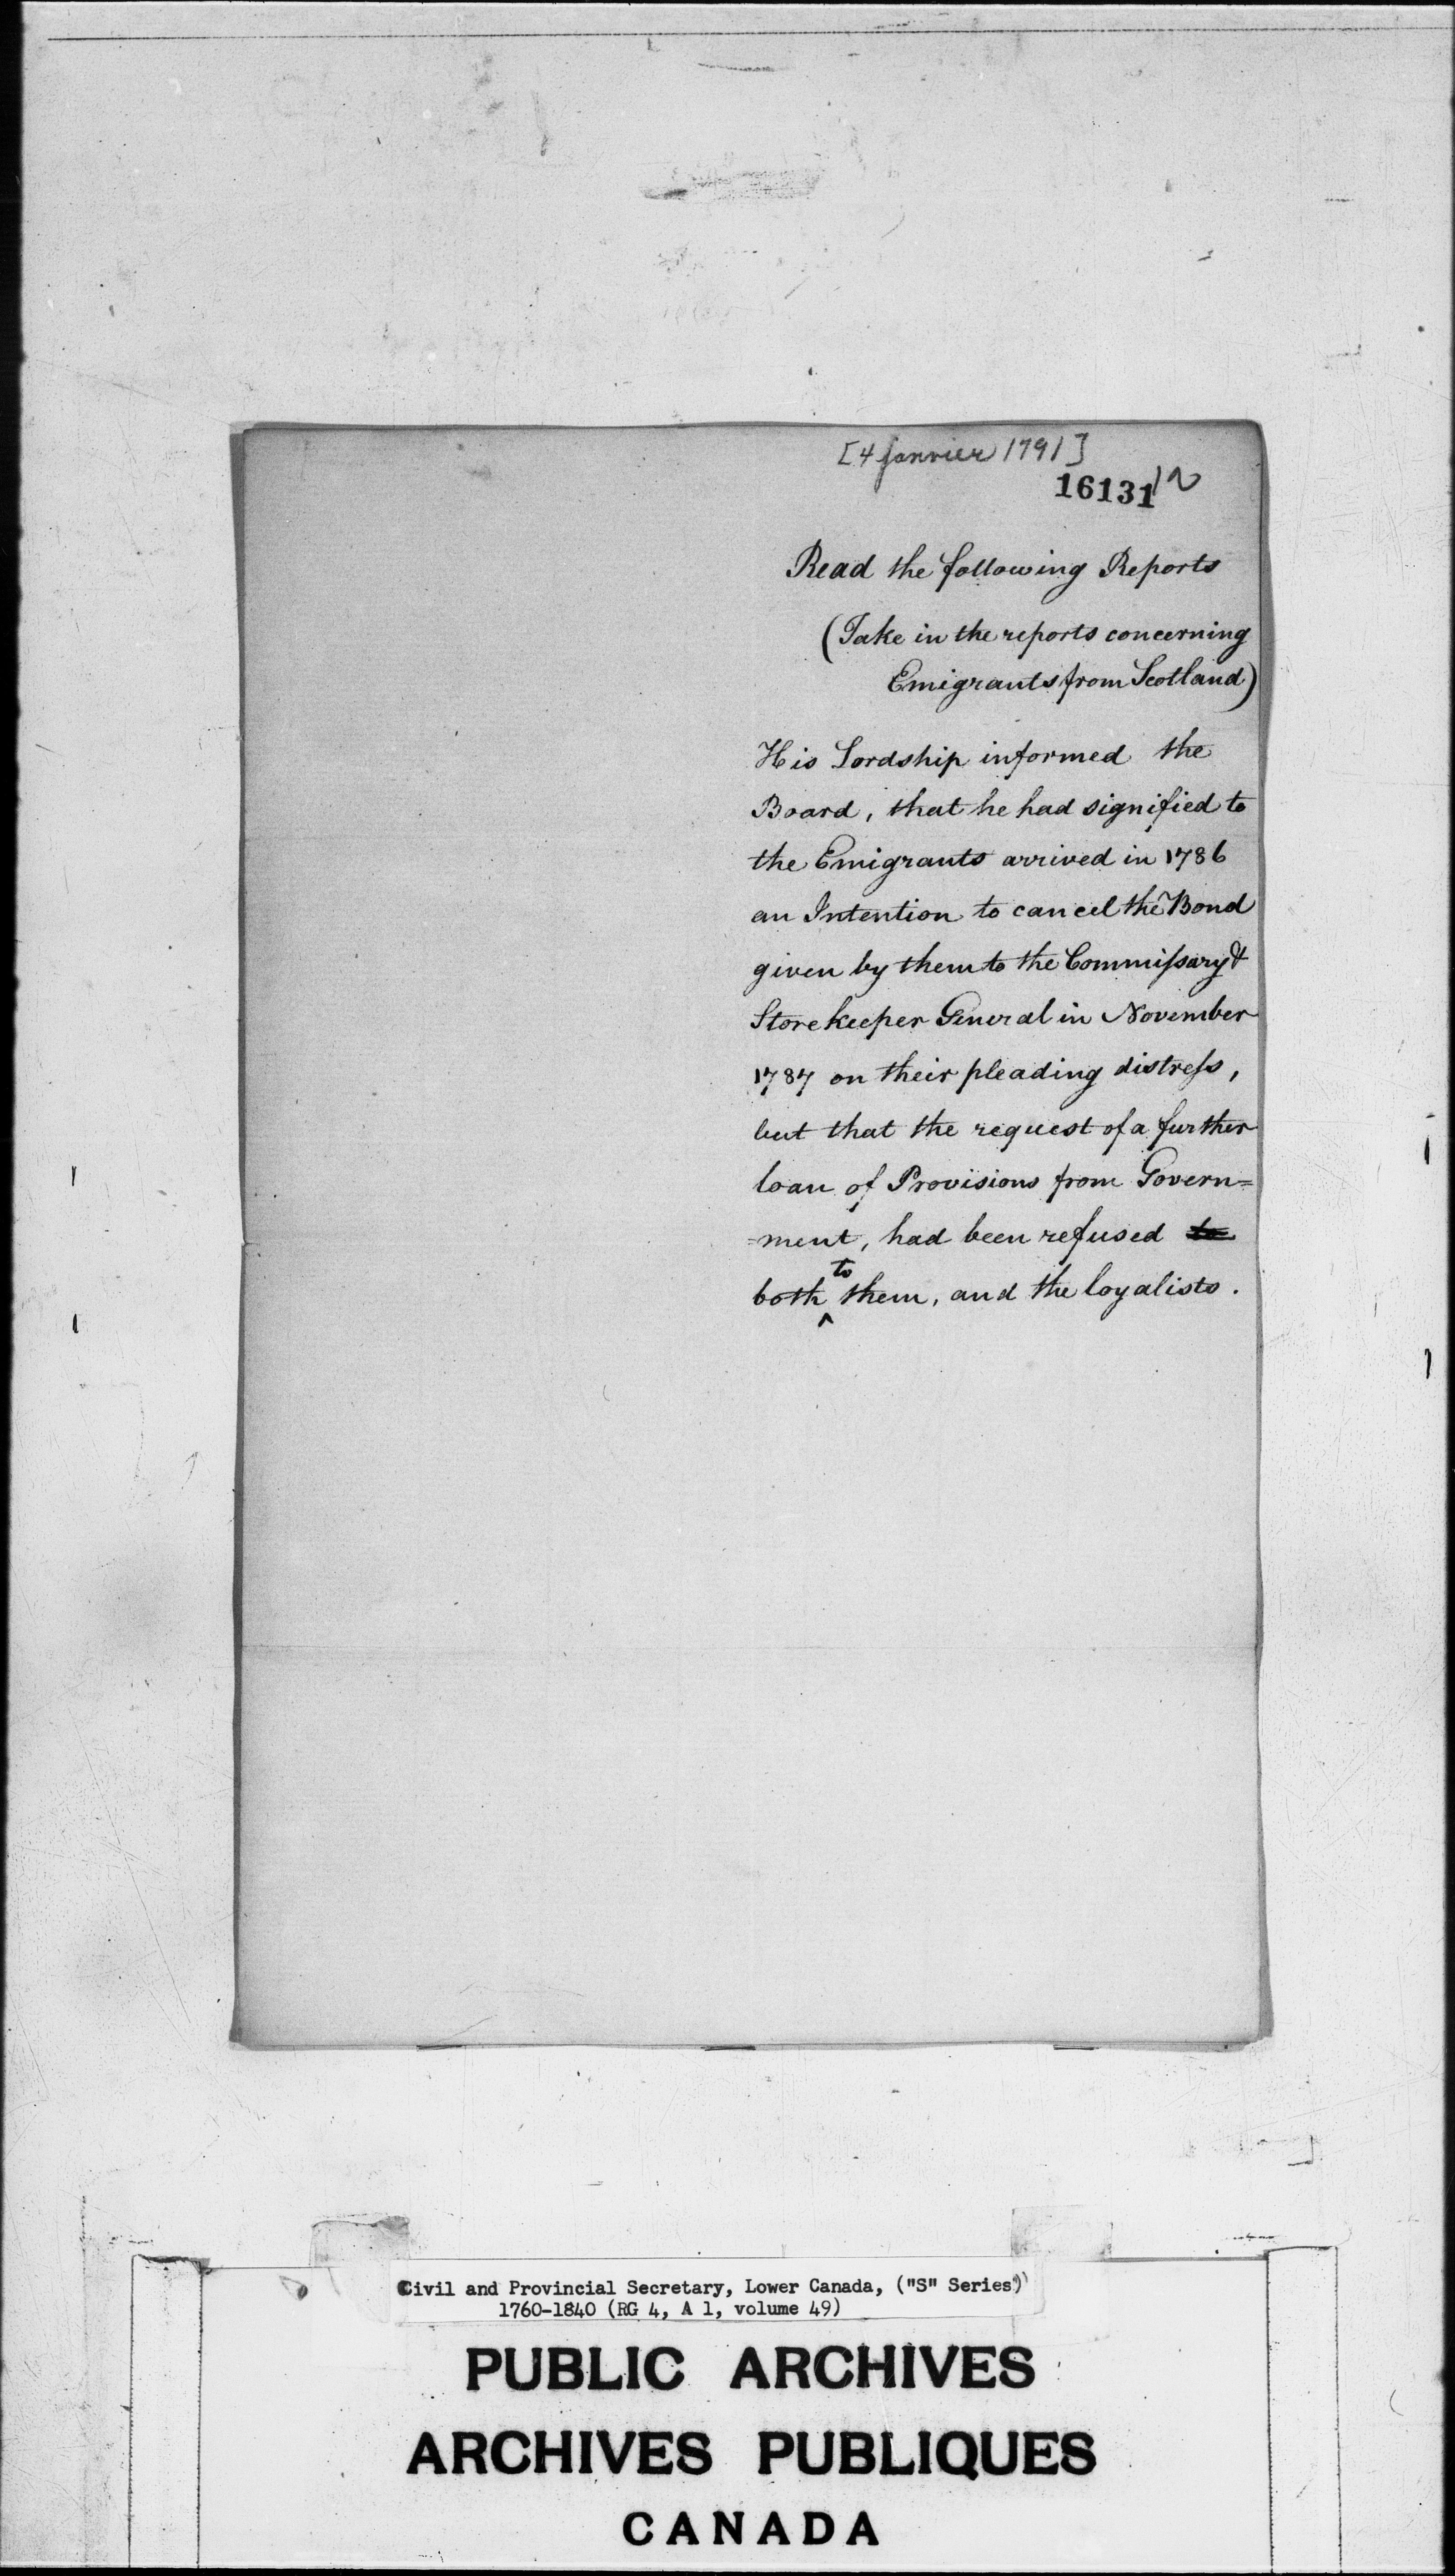 [4 janvier 1791]
16131 12
Read the following Reports
(Take in the reports concerning
Emigrants from Scotland)
His Lordship informed the
Board, that he had signified to
the Emigrants arrived in 1786
an Intention to cancel the Bond
given by them to the Commissary &
Storekeeper General in November
1787 on their pleading distress,
but that the request of a further
loan of Provisions from Govern=
=ment, had been refused to
both to them, and the loyalists.
Civil and Provincial Secretary, Lower Canada, ("S" Series)
1760-1840 (RG 4, A 1, volume 49)
PUBLIC ARCHIVES
ARCHIVES PUBLIQUES
CANADA